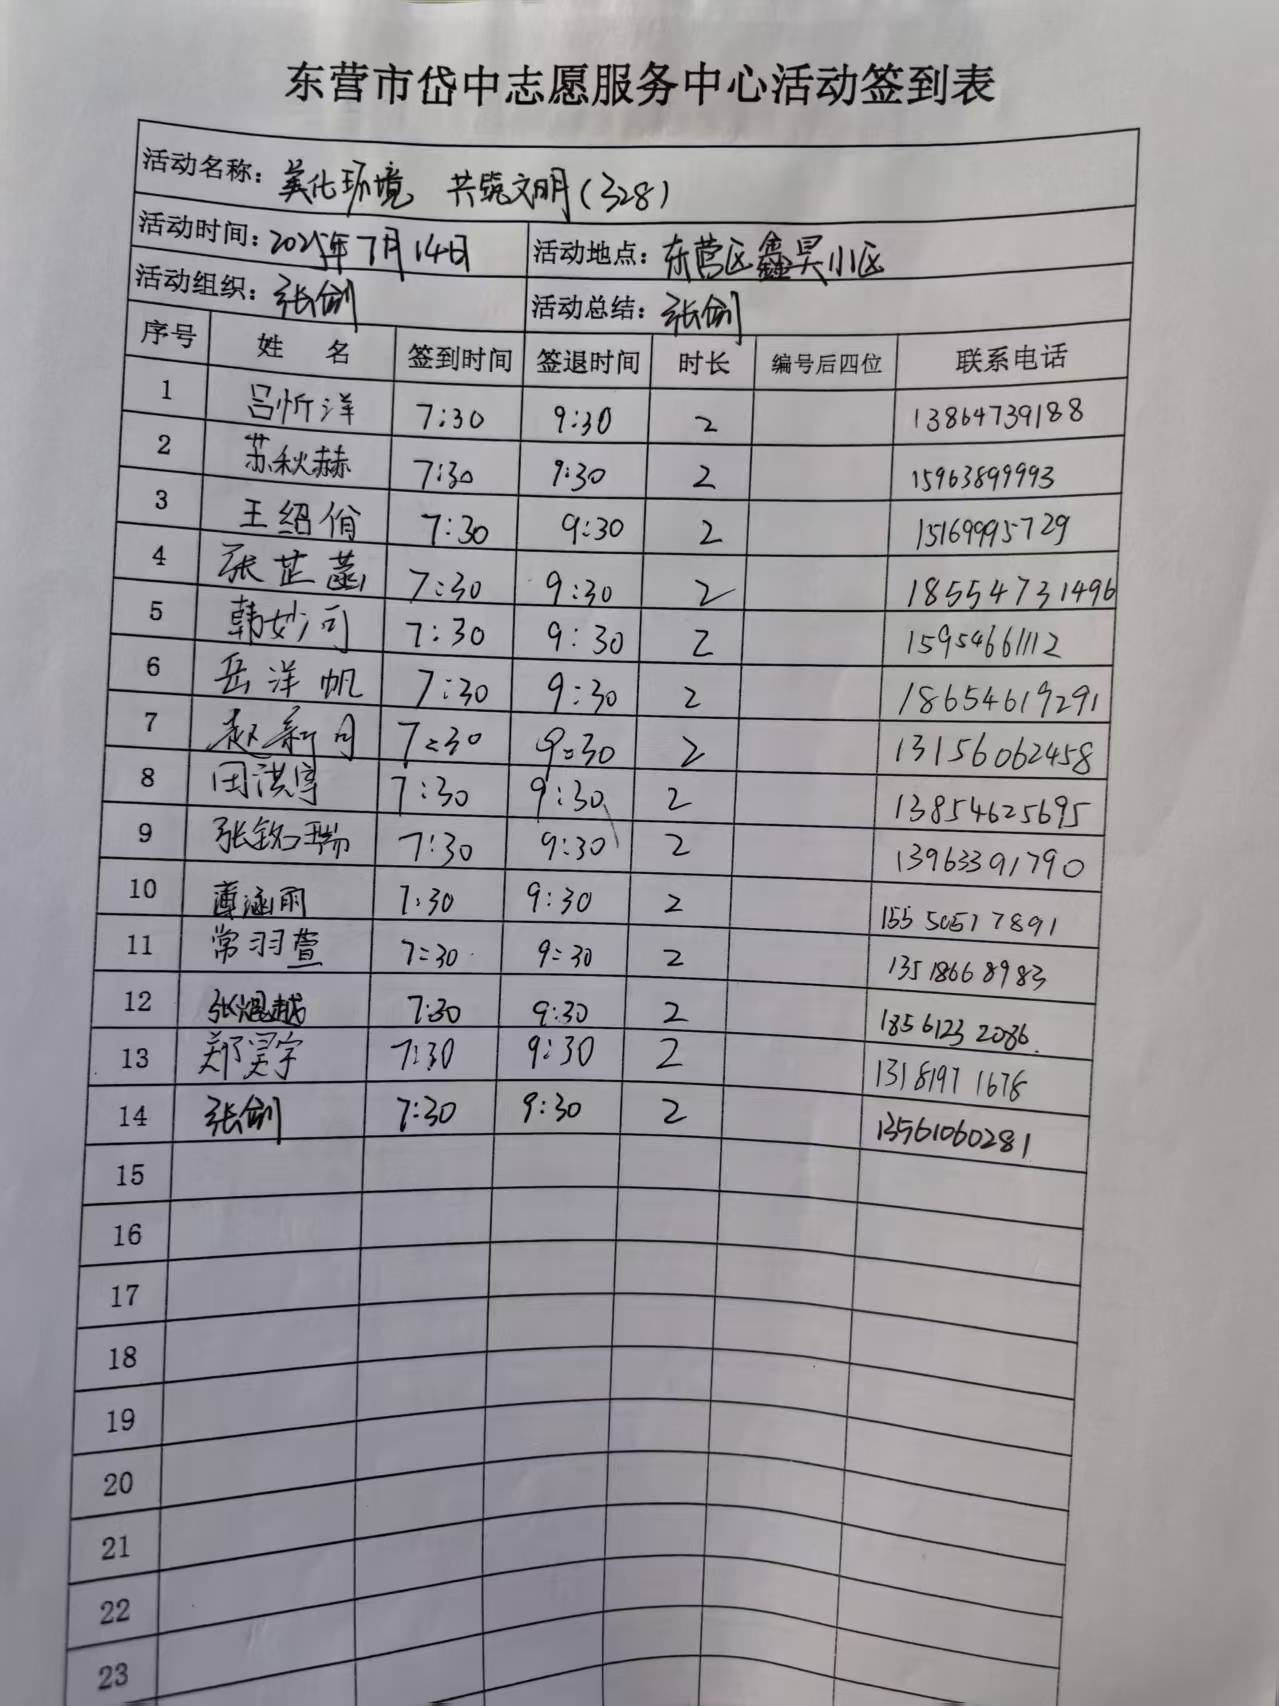 东营市岱中志愿服务中心活动签到表
活动名称: 美化环境 共筑文明(328)
活动时间: 2025年7月14日 活动地点: 东营区鑫昊小区
活动组织: 张剑 活动总结: 张剑
序号 姓 名 签到时间 签退时间 时长 编号后四位 联系电话
1 吕忻洋 7:30 9:30 2 13864739188
2 苏秋赫 7:30 9:30 2 15963899993
3 王绍俏 7:30 9:30 2 15169995729
4 张芷菡 7:30 9:30 2 18554731496
5 韩妙可 7:30 9:30 2 15954661112
6 岳洋帆 7:30 9:30 2 18654619291
7 赵新月 7:30 9:30 2 13156062458
8 田洪宇 7:30 9:30 2 13854625695
9 张铭瑞 7:30 9:30 2 13963391790
10 涵雨 7:30 9:30 2 15550517891
11 常羽萱 7:30 9:30 2 13518668983
12 张焜越 7:30 9:30 2 18561232086.
13 郑昊宇 7:30 9:30 2 13181971678
14 张剑 7:30 9:30 2 13561060281
15
16
17
18
19
20
21
22
23